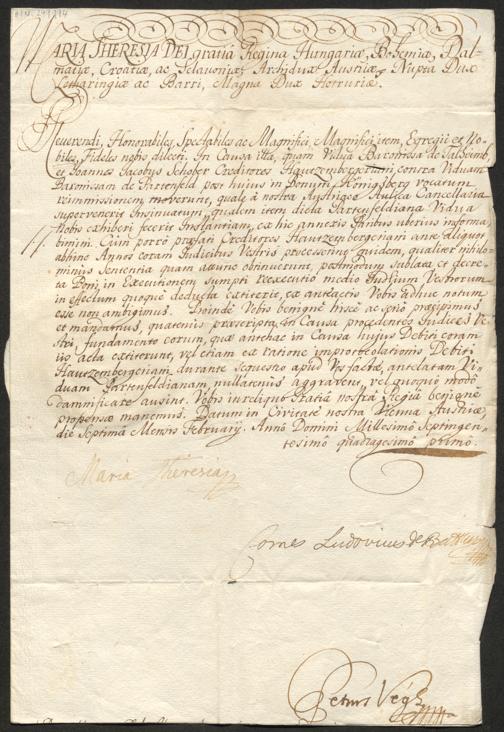 MARIA THERESIA DEI gratiâ Regina Hungariæ, Bohemiæ, Dal-
matiæ, Croatiæ, ac Sclavoniæ, Archidux Austriæ, Nupta Dux
Lotharingiæ ac Barri, Magna Dux Hetruriæ.
Reverendi, Honorabiles, Spectabiles ac Magnifici, Magnifici item, Egregii et No-
biles, Fideles nobis dilecti. In Causa illa, quam Vidua Baronissa de
et Ioannes Jacobus Creditores contra Viduam
Baronissam de post hujus in Königsberg vocatum
reimmissionem moverunt, quale à nostra Austriaco Aulica Cancellaria
supervenerit Insinuatum, qualem item dicta Vidua
Nobis exhiberi fecerit Instantiam, ex hic annexis Paribus uberius informa-
bimini. Cum porrò præfati Creditores ante aliquot
abhinc Annos coram Judicibus Vestris processerint quidem, qualiter nihilo-
minus Sententia quam obtinuerunt, postmodum Sublata et decre-
ta Poni in Executionem sumpti reexecutio medio Judicum Vestrorum
in effectum quoque deducta extiterit, ex anteactis Vobis adhuc notum
esse non ambigimus. Proinde Vobis benignè hisce ac seriò præcipimus
et mandamus, quatenus præscripta in Causa procedentes Judices Ve-
stri, fundamento eorum, quæ antehac in Causa hujus Debiti coram
iis acta extiterunt, vel etiam ex ratione Debiti
durante Sequestro apud Vos factæ, antelatam Vi-
duam nullatenus aggravent, vel quoquo modo
damnificare ausint. Vobis in reliquo Gratiâ nostrâ Regiâ benignè
propensæ manemus. Datum in Civitate nostra Vienna Austriæ,
die Septima Mensis February. Anno Domini Millesimô Septingen-
tesimô quadragesimô primô.
Maria Theresia
Comes Ludovicus de
Petrus Vegh